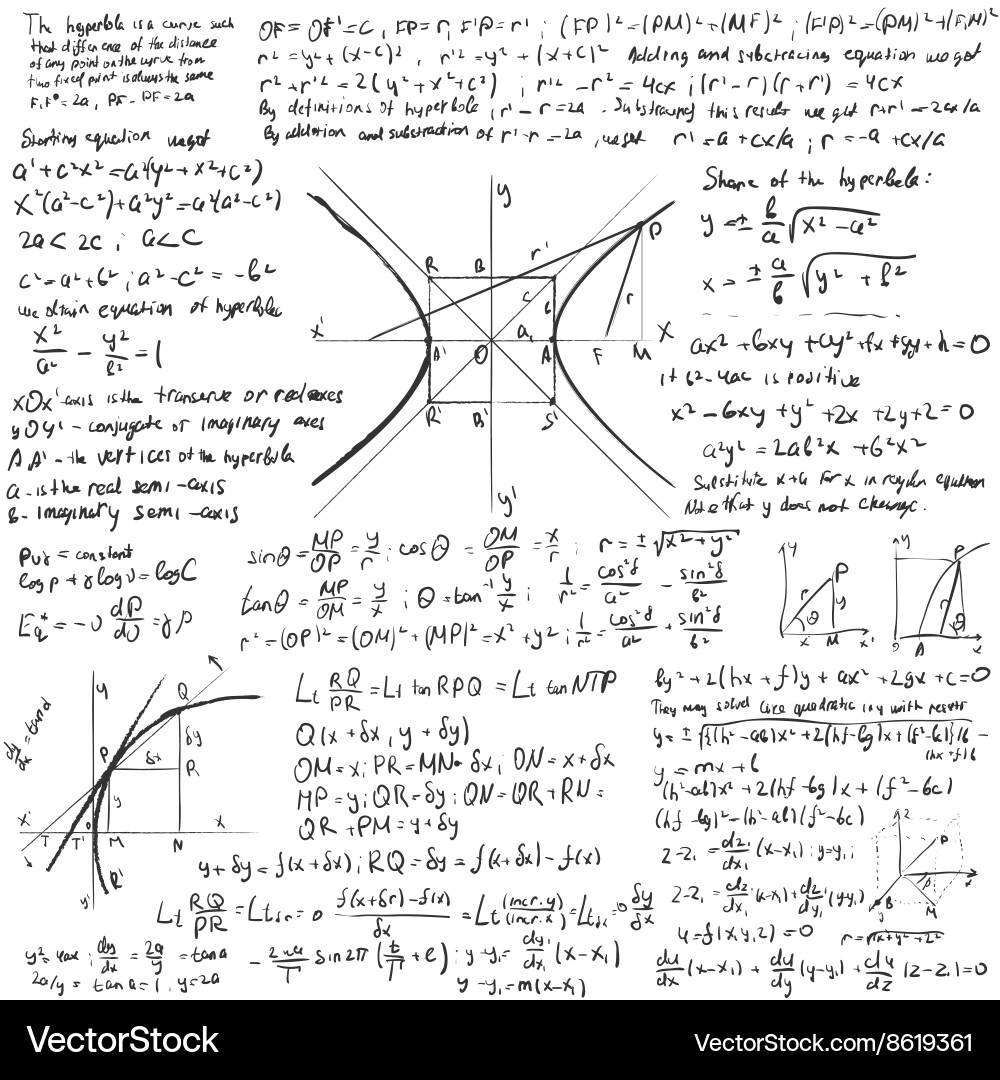 The hyperbola is a curve such
that difference of the distance
of any point on the curve from
two fixed point is always the same
F,F' = 2a, PF - PF = 2a
OF = OF' = C, FP = r, F'P = r' ; (FP)² = (PM)² + (MF)² ; (F'P)² = (PM)² + (F,M)²
r² = y² + (x-c)², r'² = y² + (x+c)² Adding and subctracing equation we got
r² + r'² = 2(y² + x² + c²) ; r'² - r² = 4cx ; (r' - r)(r + r') = 4cx
By definitions of hyperbola, r' - r = 2a. Substracing this results we got r+r' = 2cx/a
By addition and substraction of r' - r = 2a, we get r' = a + cx/a ; r = -a + cx/a
Starting equation we got
a⁴ + c²x² = a²(y² + x² + c²)
x²(a²-c²) + a²y² = a²(a²-c²)
2a < 2c ; a < c
c² = a² + b² ; a² - c² = -b²
we obtain equation of hyperbola
x²/a² - y²/b² = 1
xOx' - axis is the transerve or real axes
yOy' - conjugate or imaginary axes
AA' - the vertices of the hyperbola
a - is the real semi - axis
b - imaginary semi - axis
y
P
R B r'
c b r
x' a, x
A' O A F M
R' B' S'
y'
Shape of the hyperbola:
y = ± b/a √x² - a²
x = ± a/b √y² + b²
ax² + bxy + cy² + fx + gy + h = 0
if b² - 4ac is positive
x² - 6xy + y² + 2x + 2y + 2 = 0
a²y² = 2ab²x + b²x²
Substitute x+a for x in regular equation
Note that y does not change.
Pvɣ = constant
log p + ɣ log v = log C
E*q = -v dp/dv = ɣp
sinθ = MP/OP = y/r ; cosθ = OM/OP = x/r ; r = ± √x² + y²
tanθ = MP/OM = y/x ; θ = tan⁻¹ y/x ; 1/r² = cos²δ/a² - sin²δ/b²
r² = (OP)² = (OM)² + (MP)² = x² + y² ; 1/r² = cos²δ/a² + sin²δ/b²
y P
r y
θ
x M x'
y P
r θ
A x
dy/dx = tan α
y Q
δy
P δx R
y
x' x
T T' o M N
R'
y'
Lt RQ/PR = Lt tan RPQ = Lt tan NTP
Q(x + δx, y + δy)
OM = x; PR = MN = δx; ON = x + δx
MP = y; QR = δy; QN = QR + RN =
QR + PM = y + δy
y + δy = f(x + δx); RQ = δy = f(x + δx) - f(x)
Lt RQ/PR = Lt δx = 0 f(x+δx) - f(x)/δx = Lt (incr.y)/(incr.x) = Lt δx = 0 δy/δx
y² = 4ax ; dy/dx = 2a/y = tan a
2a/y = tan a = 1, y = 2a
sin 2π (t/T + e) ; y - y₁ = dy₁/dx₁ (x - x₁)
y - y₁ = m(x - x₁)
by² + 2(hx + f)y + ax² + 2gx + c = 0
They may solved like quadratic in y with results
y = ± √{(h² - ab)x² + 2(hf - bg)x + (f² - bc)}/b -
(hx + f)/b
y = mx + b
(h² - ab)x² + 2(hf - bg)x + (f² - bc)
(hf - bg)² - (h² - ab)(f² - bc)
z - z₁ = dz₁/dx₁ (x - x₁) ; y = y₁ ;
z - z₁ = dz₁/dx₁ (x - x₁) + dz₁/dy₁ (y - y₁)
u = f(x,y,z) = 0
z
P
x
y M
r = √x² + y² + z²
du/dx (x - x₁) + du/dy (y - y₁) + du/dz (z - z₁) = 0
VectorStock
VectorStock.com/8619361